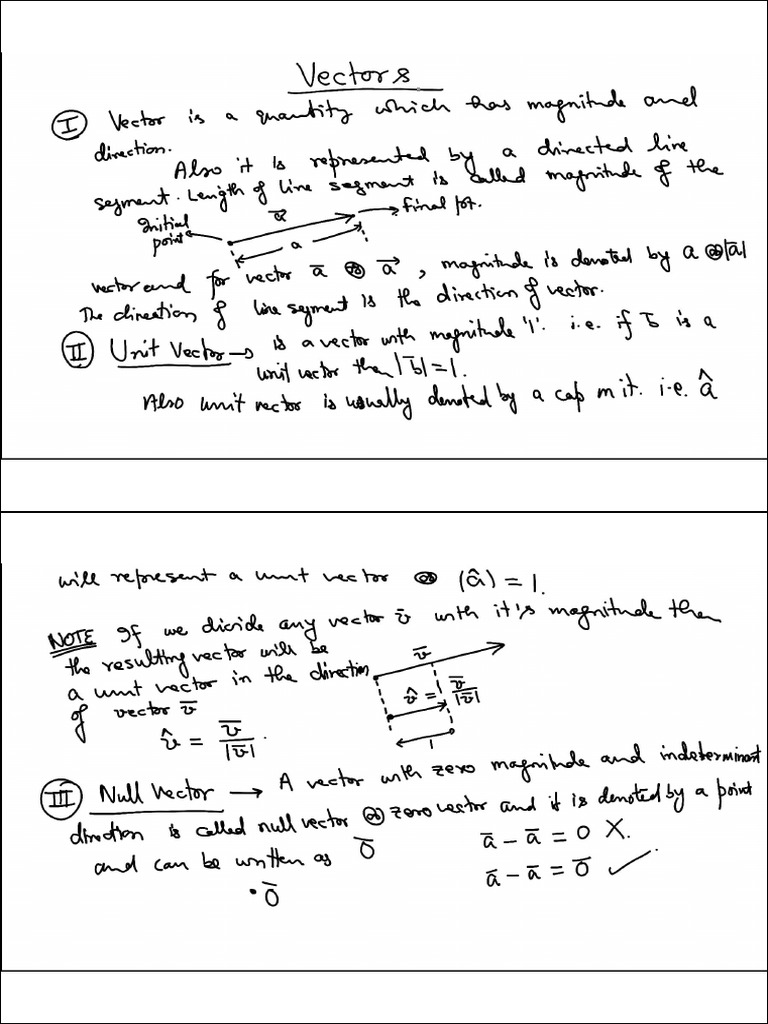 Vectors
I Vector is a quantity which has magnitude and
direction.
Also it is represented by a directed line
segment. Length of line segment is called magnitude of the
Initial
point
a̅
a
final pt.
vector and for vector a̅ or a⃗, magnitude is denoted by a or |a̅|
The direction of line segment is the direction of vector.
II Unit Vector → is a vector with magnitude '1'. i.e. if b̅ is a
unit vector then |b̅| = 1.
Also unit vector is usually denoted by a cap on it. i.e. â
will represent a unit vector or (â) = 1.
NOTE If we divide any vector v̅ with it's magnitude then
the resulting vector will be
a unit vector in the direction
of vector v̅
v̂ = v̅/|v̅|.
v̅
v̂ = v̅/|v̅|
1
III Null Vector → A vector with zero magnitude and indeterminant
direction is called null vector or zero vector and it is denoted by a point
and can be written as 0̅
• 0̅
a̅ - a̅ = 0 ✗.
a̅ - a̅ = 0̅ ✓